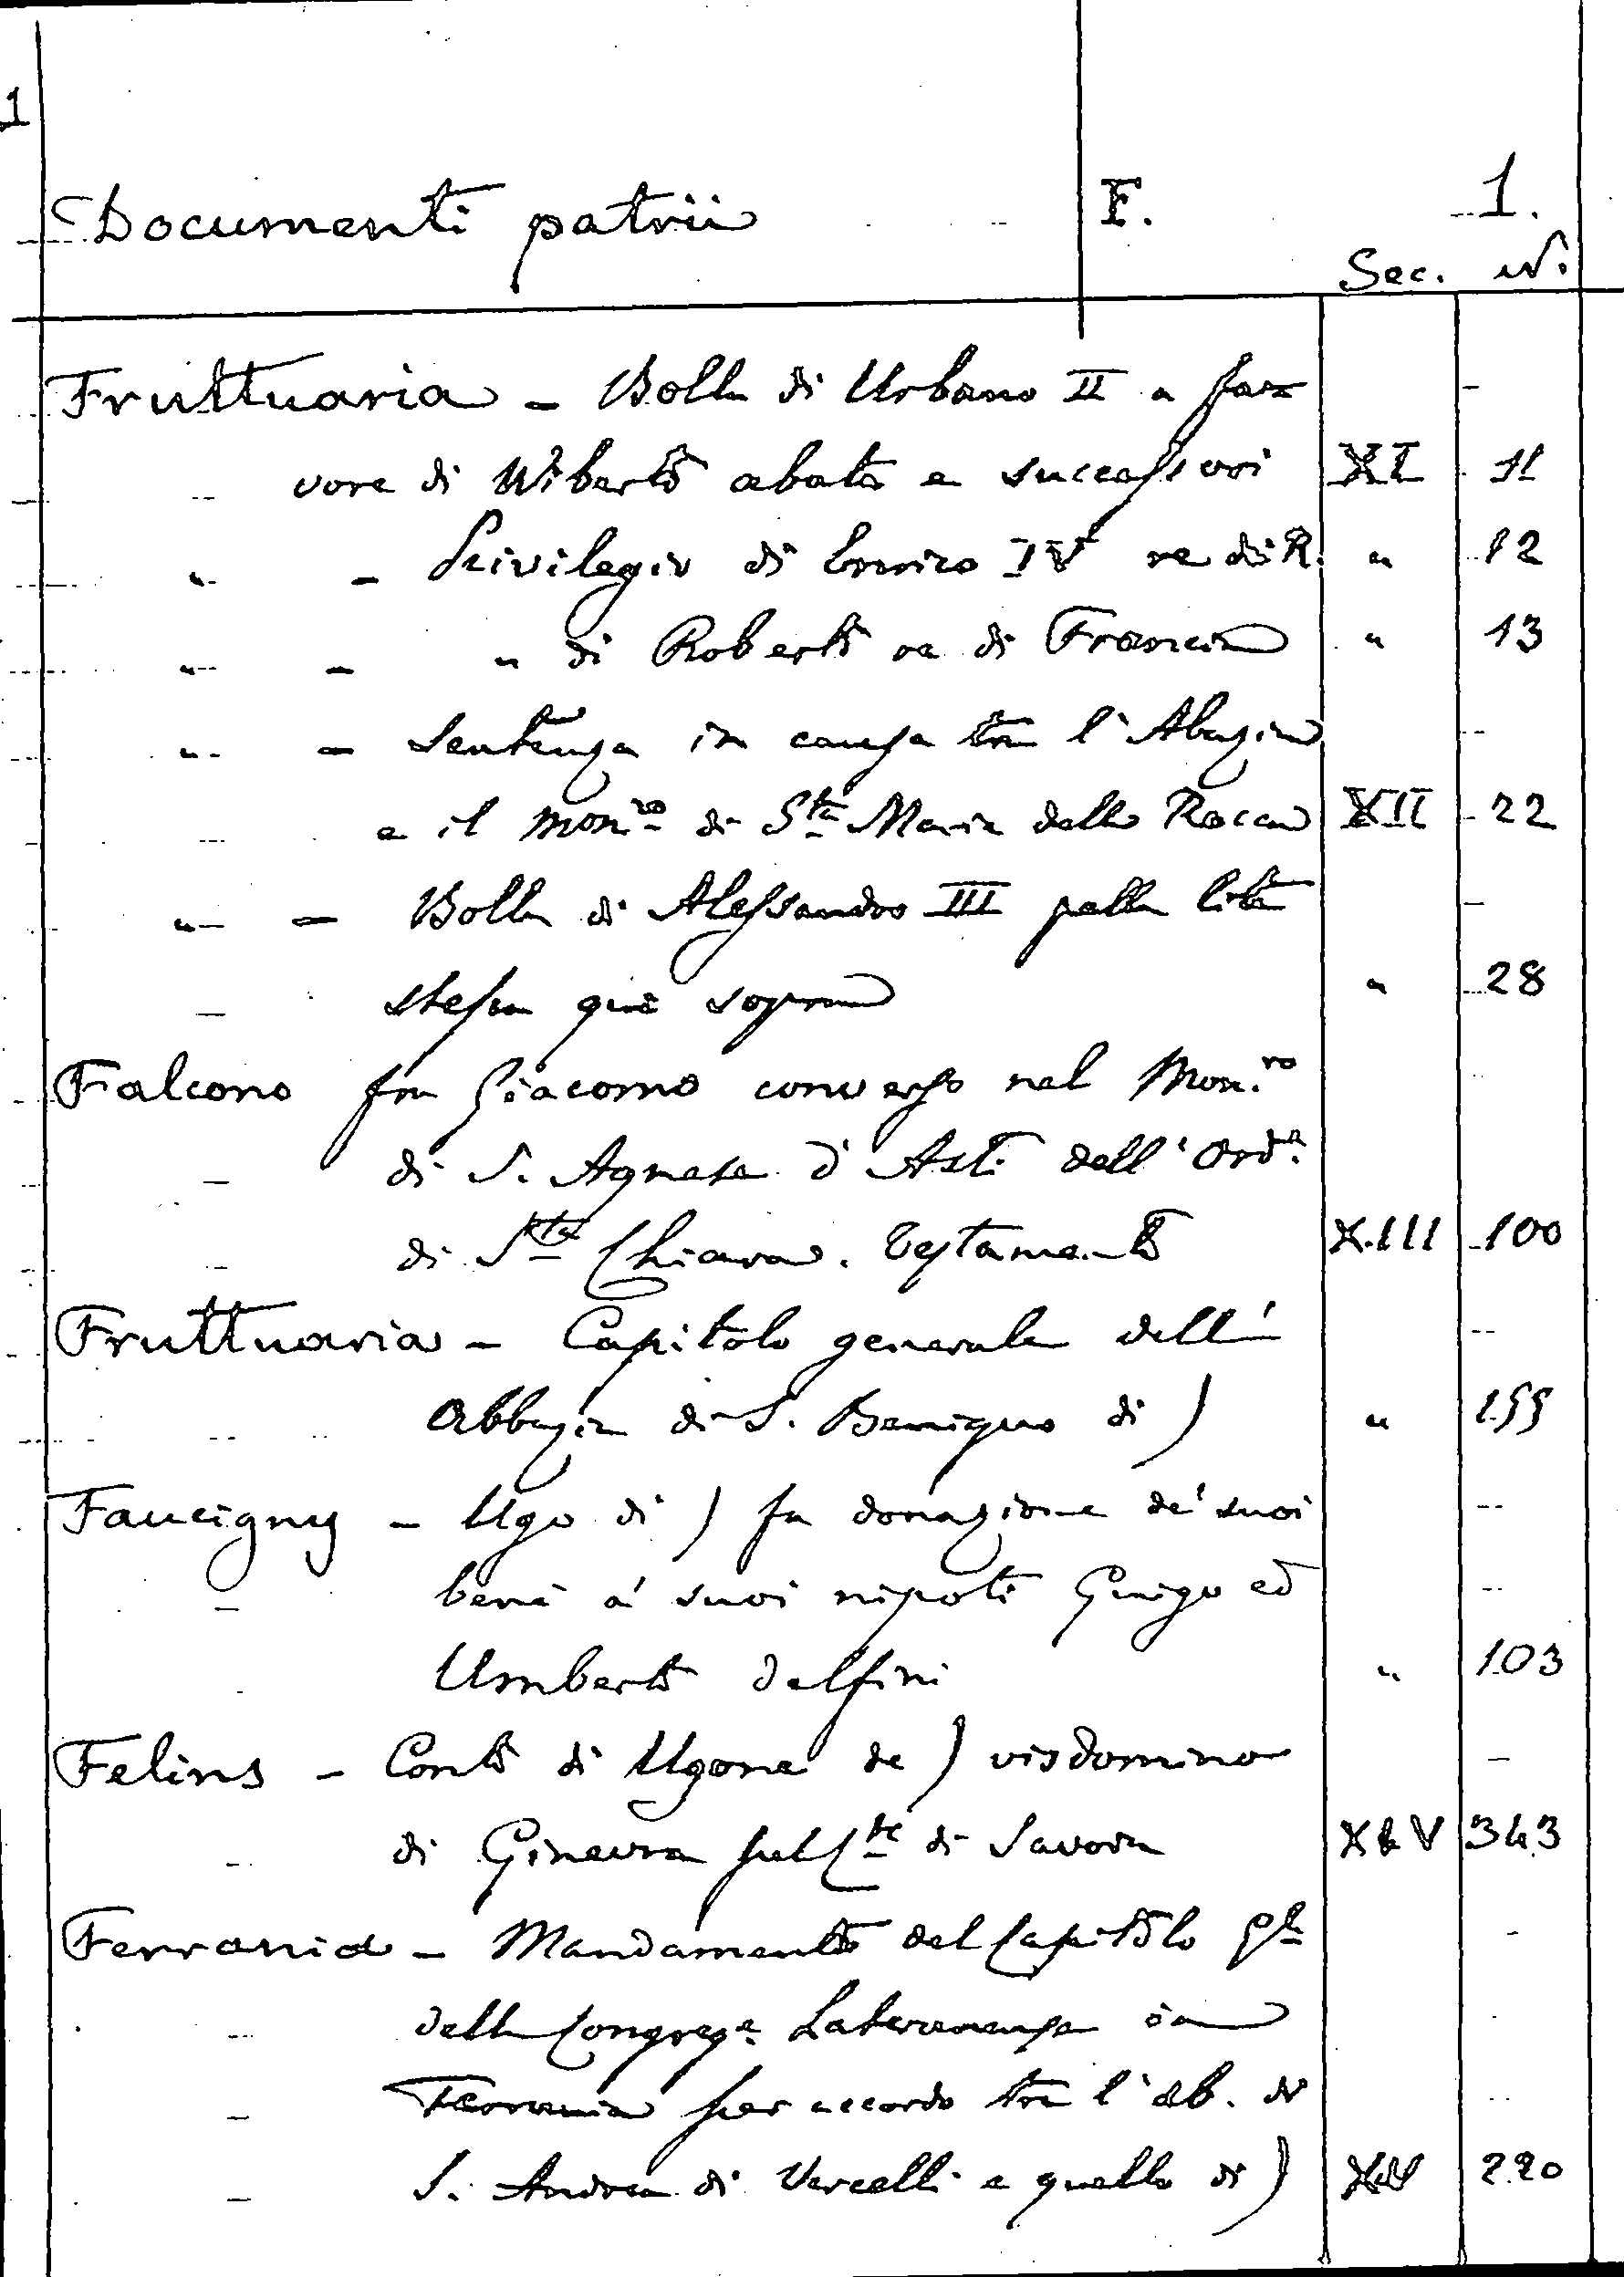 1
Documenti patrii F. 1.
Sec. N.
Fruttuaria - Bolla di Urbano II a fa=
vore di Wiberto abate e successori XI 11
" - Privilegio di Enrico IV re di R. " 12
" - " di Roberto re di Francia " 13
" - Sentenza in causa tra l'Abazia
e il mon.ro di Sta Maria della Rocca XII 22
" - Bolla di Alessandro III pella lite
stessa quì sopra " 28
Falcono fra Giacomo converso nel Mon.ro
di S. Agnese d'Asti dell'Ord.e
di Sta Chiara. Testamento XIII 100
Fruttuaria - Capitolo generale dell'
Abbazia di S. Benigno di) " 155
Faucigny - Ugo di) fa donazione de' suoi
beni a' suoi nipoti Guigo ed
Umberto delfini " 103
Felins - Conto di Ugone de) visdomino
di Ginevra pel Cte di Savoia XIV 343
Ferrania - Mandamento del Capitolo Gle
della Congreg.e Lateranense in
Ferrania per accordo tra l'ab. di
S. Andrea di Vercelli e quello di) XIV 220